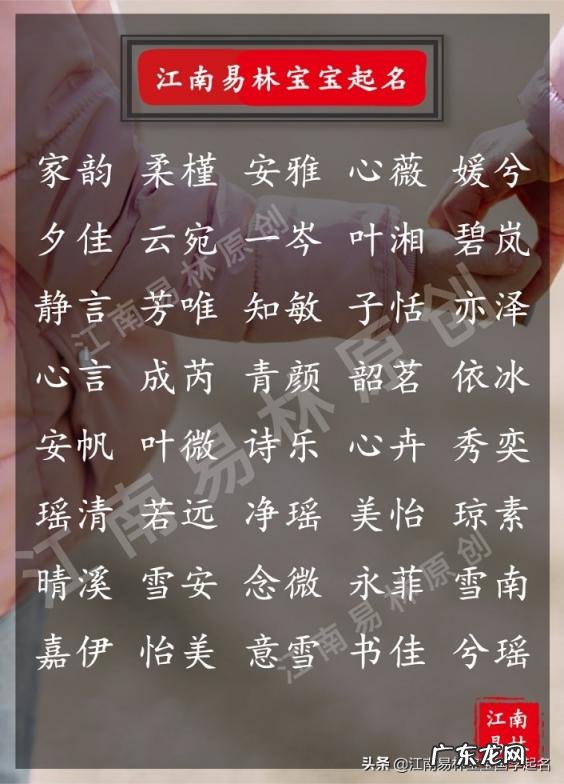 江南易林宝宝起名
家韵 柔槿 安雅 心薇 媛兮
夕佳 云宛 一岑 叶湘 碧岚
静言 芳唯 知敏 子恬 亦泽
心言 成芮 青颜 韶茗 依冰
安帆 叶微 诗乐 心卉 秀奕
瑶清 若远 净瑶 美怡 琼素
晴溪 雪安 念微 永菲 雪南
嘉伊 怡美 意雪 书佳 兮瑶
江南易林原创
江南易林原创
江南易林原创
江南
易林
头条 @江南易林宝宝国学起名
广东龙网